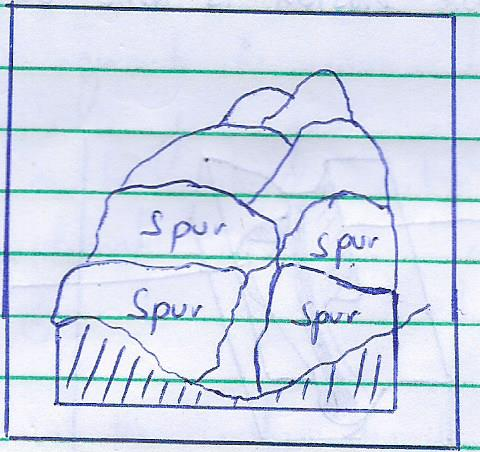 Spur
Spur
Spur
Spur